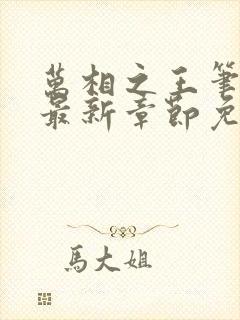 萬相之王筆
最新章節免
馬大姐